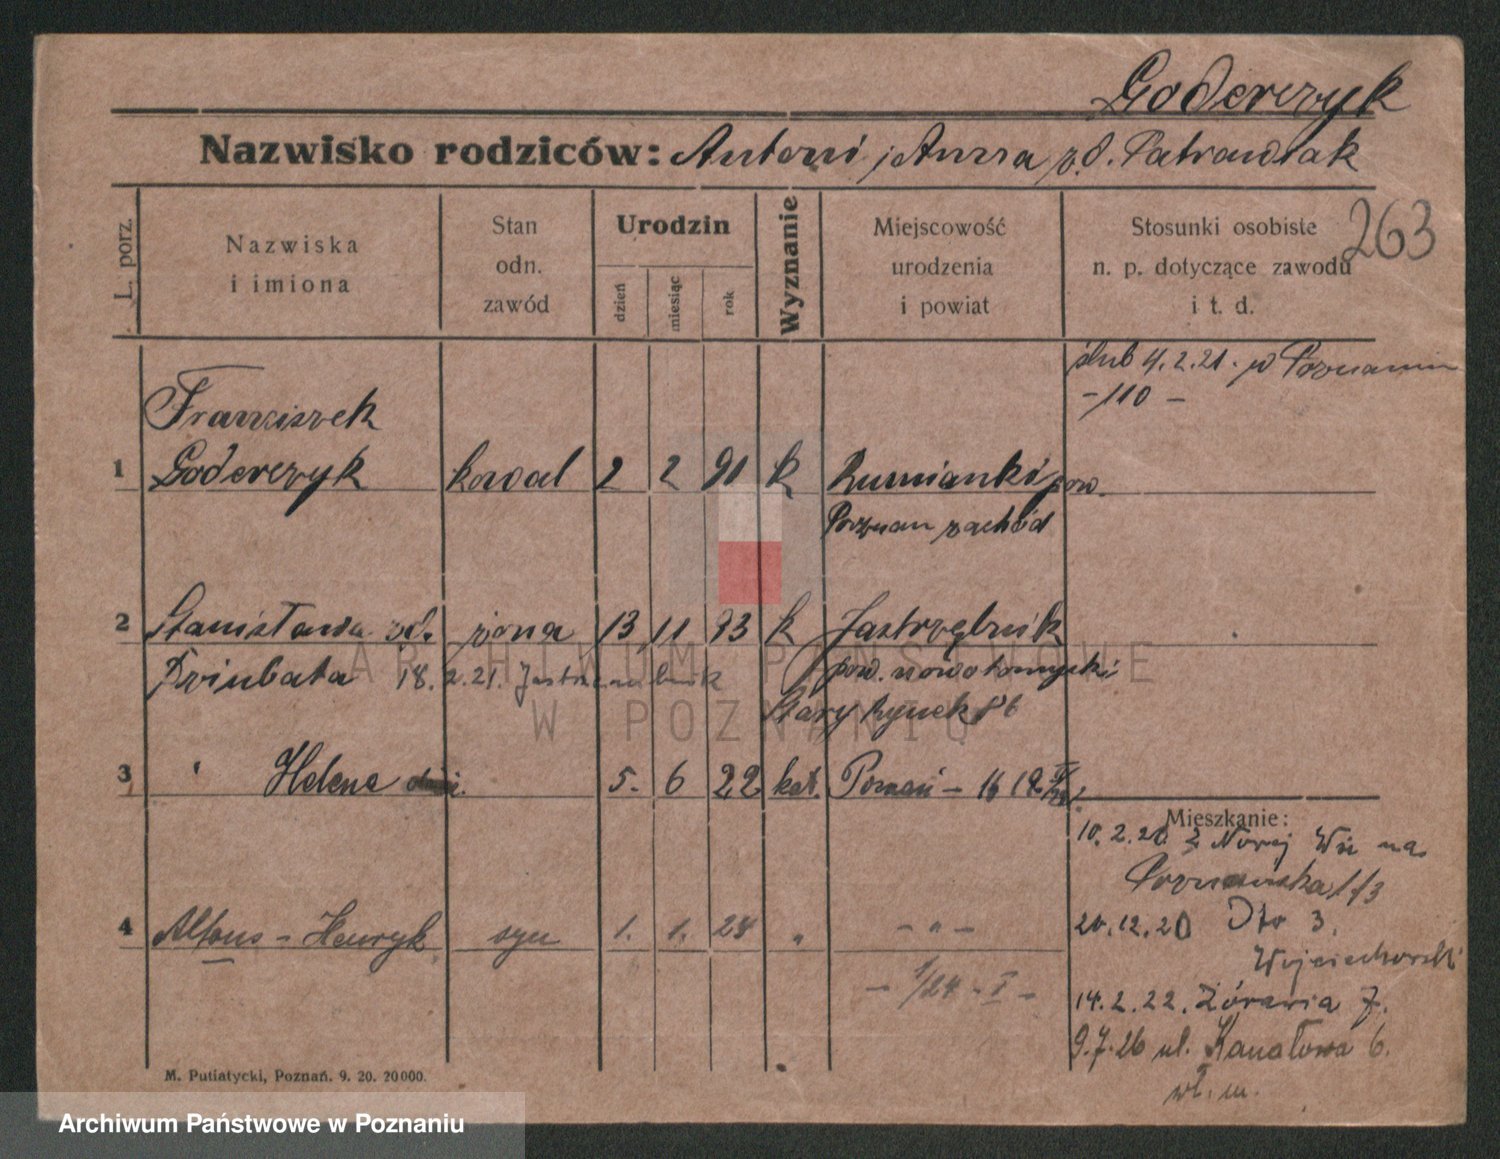 Goderczyk
Nazwisko rodziców: Antoni i Anna z d. Patrawiak
263
L. porz.
Nazwiska i imiona
Stan odn. zawód
Urodzin
dzień miesiąc rok
Wyznanie
Miejscowość urodzenia i powiat
Stosunki osobiste n. p. dotyczące zawodu i t. d.
ślub 4.2.21. w Poznaniu
-110-
Franciszek
1 Goderczyk kowal 2 2 91 k Rumianki pow.
Poznan zachód
2 Stanisława zd. żona 13 11 93 k Jastrzębnik
Dziubata 18.2.21. Jastrzembnik pow. nowotomyski
Stary Rynek 86
3 " Helena 5. 6 22 kat. Poznań -
Mieszkanie:
10.2.20. z Nowej Wsi
Poznańska
4 Alfons - Henryk syn 1. 1. 24 " - " -
20.12.20 3.
Wojciechowski
- 1/24 - I -
14.2.22. Żórawia 7.
9.7.26 ul. Kanałowa 6.
wł. m.
M. Putiatycki, Poznań. 9. 20. 20000.
ARCHIWUM PAŃSTWOWE
W POZNANIU
Archiwum Państwowe w Poznaniu